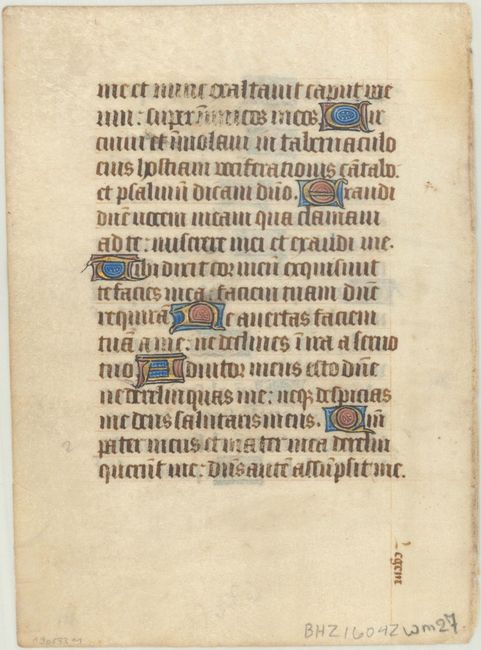 me et nunc exaltavit caput me
um: super inimicos meos. Cir
cuivi et imolavi in tabernaculo
eius hostiam vociferationis cātabo.
et psalmū dicam dn̄o. Exaudi
dn̄e vocem meam qua clamavi
ad te: miserere mei et exaudi me.
Tibi dixit cor meū exquisivit
te facies mea: faciem tuam dn̄e
requirā. Ne avertas faciem
tuā a me: ne declines ī ira a servo
tuo. Adiutor meus esto dn̄e
ne derelinquas me: neq; despicias
me deus salutaris meus. Qm̄
pater meus et mater mea dereliq
querūt me: dn̄s autē assūpsit me.
BHZ1604Z wm27.